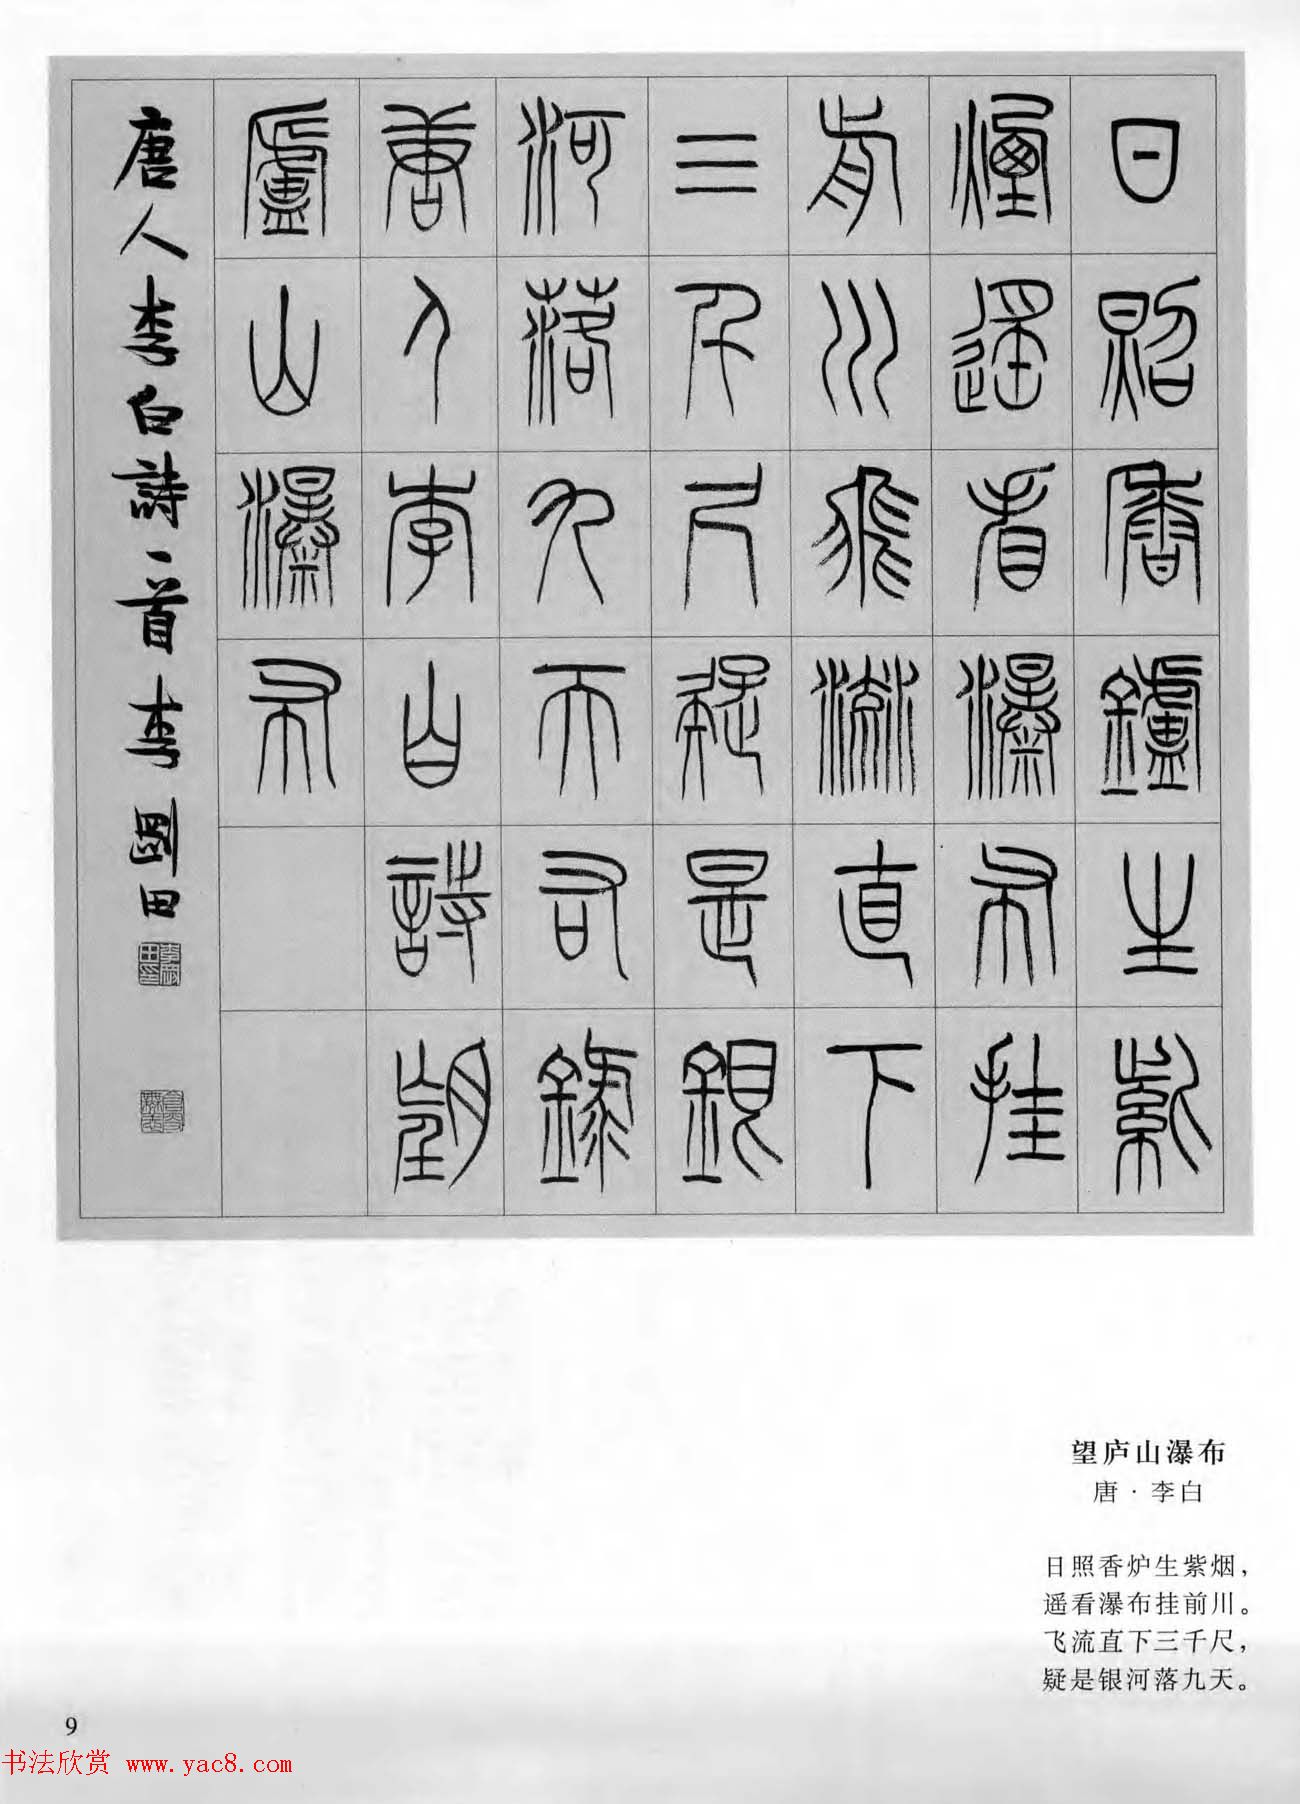 日照香鑪生紫
煙遙看瀑布挂
前川飛流直下
三千尺疑是銀
河落九天右錄
唐人李白詩望
廬山瀑布
唐人李白詩一首李剛田
李剛田印
望庐山瀑布
唐·李白
日照香炉生紫烟，
遥看瀑布挂前川。
飞流直下三千尺，
疑是银河落九天。
9
书法欣赏 www.yac8.com